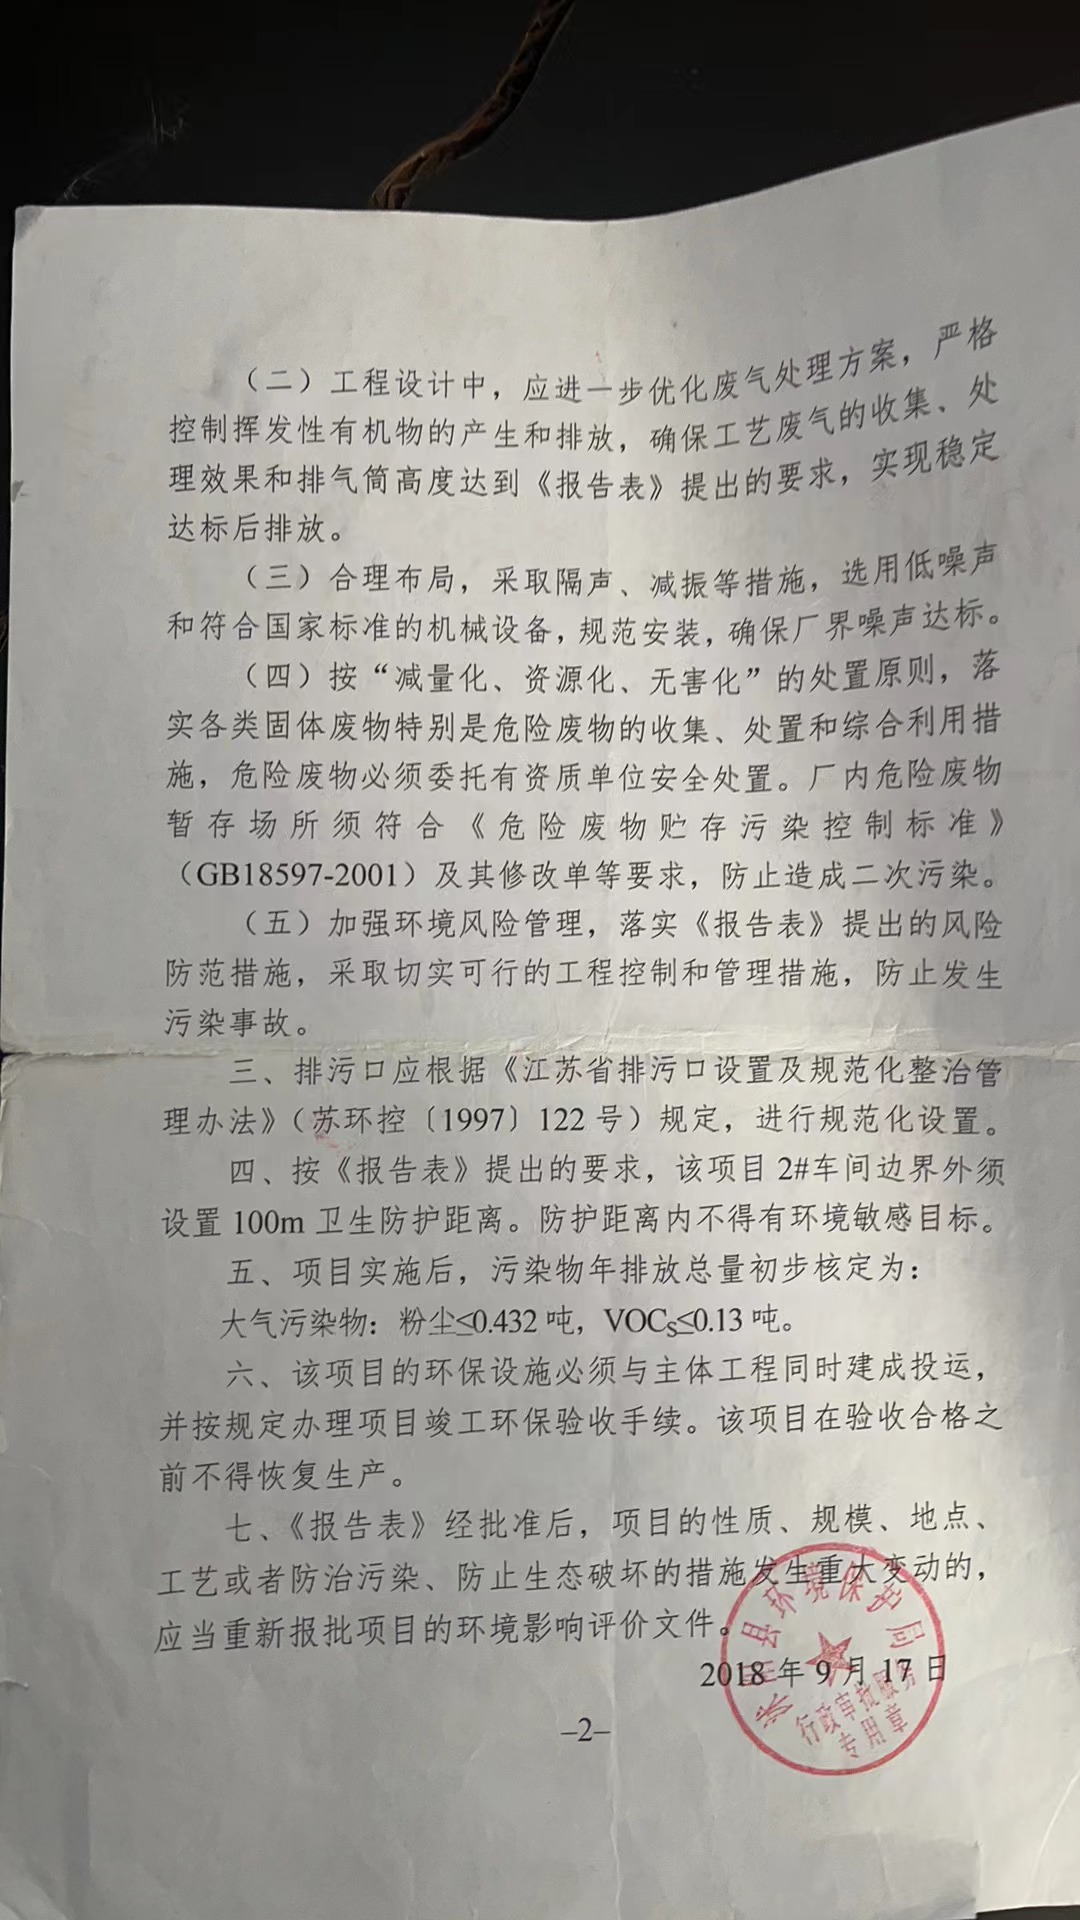 （二）工程设计中，应进一步优化废气处理方案，严格
控制挥发性有机物的产生和排放，确保工艺废气的收集、处
理效果和排气筒高度达到《报告表》提出的要求，实现稳定
达标后排放。
（三）合理布局，采取隔声、减振等措施，选用低噪声
和符合国家标准的机械设备，规范安装，确保厂界噪声达标。
（四）按“减量化、资源化、无害化”的处置原则，落
实各类固体废物特别是危险废物的收集、处置和综合利用措
施，危险废物必须委托有资质单位安全处置。厂内危险废物
暂存场所须符合《危险废物贮存污染控制标准》
（GB18597-2001）及其修改单等要求，防止造成二次污染。
（五）加强环境风险管理，落实《报告表》提出的风险
防范措施，采取切实可行的工程控制和管理措施，防止发生
污染事故。
三、排污口应根据《江苏省排污口设置及规范化整治管
理办法》（苏环控〔1997〕122 号）规定，进行规范化设置。
四、按《报告表》提出的要求，该项目 2#车间边界外须
设置 100m 卫生防护距离。防护距离内不得有环境敏感目标。
五、项目实施后，污染物年排放总量初步核定为：
大气污染物：粉尘≤0.432 吨，VOCs≤0.13 吨。
六、该项目的环保设施必须与主体工程同时建成投运，
并按规定办理项目竣工环保验收手续。该项目在验收合格之
前不得恢复生产。
七、《报告表》经批准后，项目的性质、规模、地点、
工艺或者防治污染、防止生态破坏的措施发生重大变动的，
应当重新报批项目的环境影响评价文件。
县环境保护局
2018 年 9 月 17 日
行政审批服务
专用章
–2–